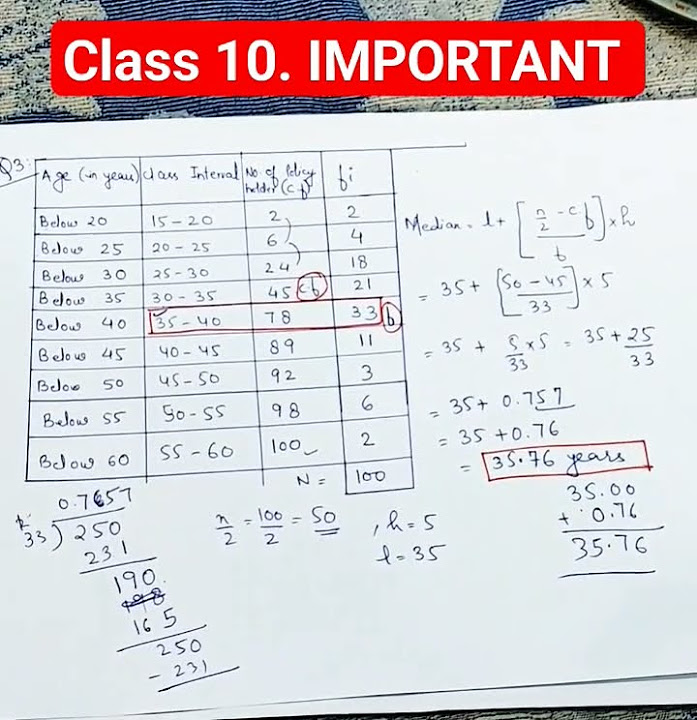 Class 10. IMPORTANT
Q3.
Age (in years) Class Interval No. of Policy holder (cf) fi
Below 20 15-20 2 2
Below 25 20-25 6 4
Below 30 25-30 24 18
Below 35 30-35 45 cf 21
Below 40 35-40 78 33 f
Below 45 40-45 89 11
Below 50 45-50 92 3
Below 55 50-55 98 6
Below 60 55-60 100 2
N = 100
Median = l + [n/2 - cf / f] × h
= 35 + [50 - 45 / 33] × 5
= 35 + 5/33 × 5 = 35 + 25/33
= 35 + 0.757
= 35 + 0.76
= 35.76 years
35.00
+ 0.76
35.76
n/2 = 100/2 = 50 , h = 5
l = 35
0.7657
33) 250
231
190
165
250
- 231